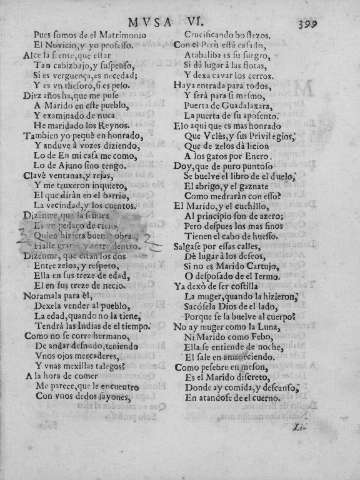 MVSA VI. 399
Pues somos de el Matrimonio
El Novicio, y yo professo.
Alce la frente, que estar
Tan cabizbajo, y suspenso,
Si es verguença, es necedad;
Y es en thesoro, si es peso.
Diez años ha, que me puse
A Marido en este pueblo,
Y examinado de nuca
He maridado los Reynos.
Tambien yo pequè en honrado,
Y anduve à vozes diziendo,
Lo de En mi casa me como,
Lo de Ajuno sino tengo.
Clavè ventanas, y rejas,
Y me truxeron inquieto,
El que diràn en el barrio,
La vecindad, y los cuentos.
Dizenme, que la
El pedaço de
Quien hiziera buena obra
Dizenme, que citan los dos
Entre zelos, y respeto,
Ella en sus treze de edad,
El en sus treze de necio.
Noramala para èl,
Dexela vender al pueblo,
La edad, quando no la tiene,
Tendrà las Indias de el tiempo.
Como no se corre hermano,
De andar desnudo, teniendo
Vnos ojos mercaderes,
Y vnas mexillas talegos?
A la hora de comer
Me parece, que le encuentro
Con vnos dedos jayones,
Crucificando bostezos.
Con el Perù està casado,
Atabaliba es su suegro,
Si dà lugar à las flotas,
Y dexa cavar los cerros.
Haya entrada para todos,
Y serà para si mesmo,
Puerta de Guadalaxara,
La puerta de su aposento.
Elo aqui que es mas honrado
Que Velès, y sus Privilegios,
Que de zelos dà licion
A los gatos por Enero.
Doy, que de puro puntoso
Se buelve el libro de el duelo,
El abrigo, y el gaznate
Como medraràn con esso?
El Marido, y el cuchillo,
Al principio son de azero;
Pero despues los mas finos
Tienen el cabo de huesso.
Salgase por essas calles,
Dè lugar à los deseos,
Si no es Marido Cartujo,
O desposado de el Iermo.
Ya dexò de ser costilla
La muger, quando la hizieron,
Sacòsela Dios de el lado,
Porque se la buelve al cuerpo?
No ay muger como la Luna,
Ni Marido como Febo,
Ella se entiende de noche,
El sale en amaneciendo.
Como pesebre en meson,
Es el Marido discreto,
Donde ay comida, y descanso,
En atandose de el cuerno.